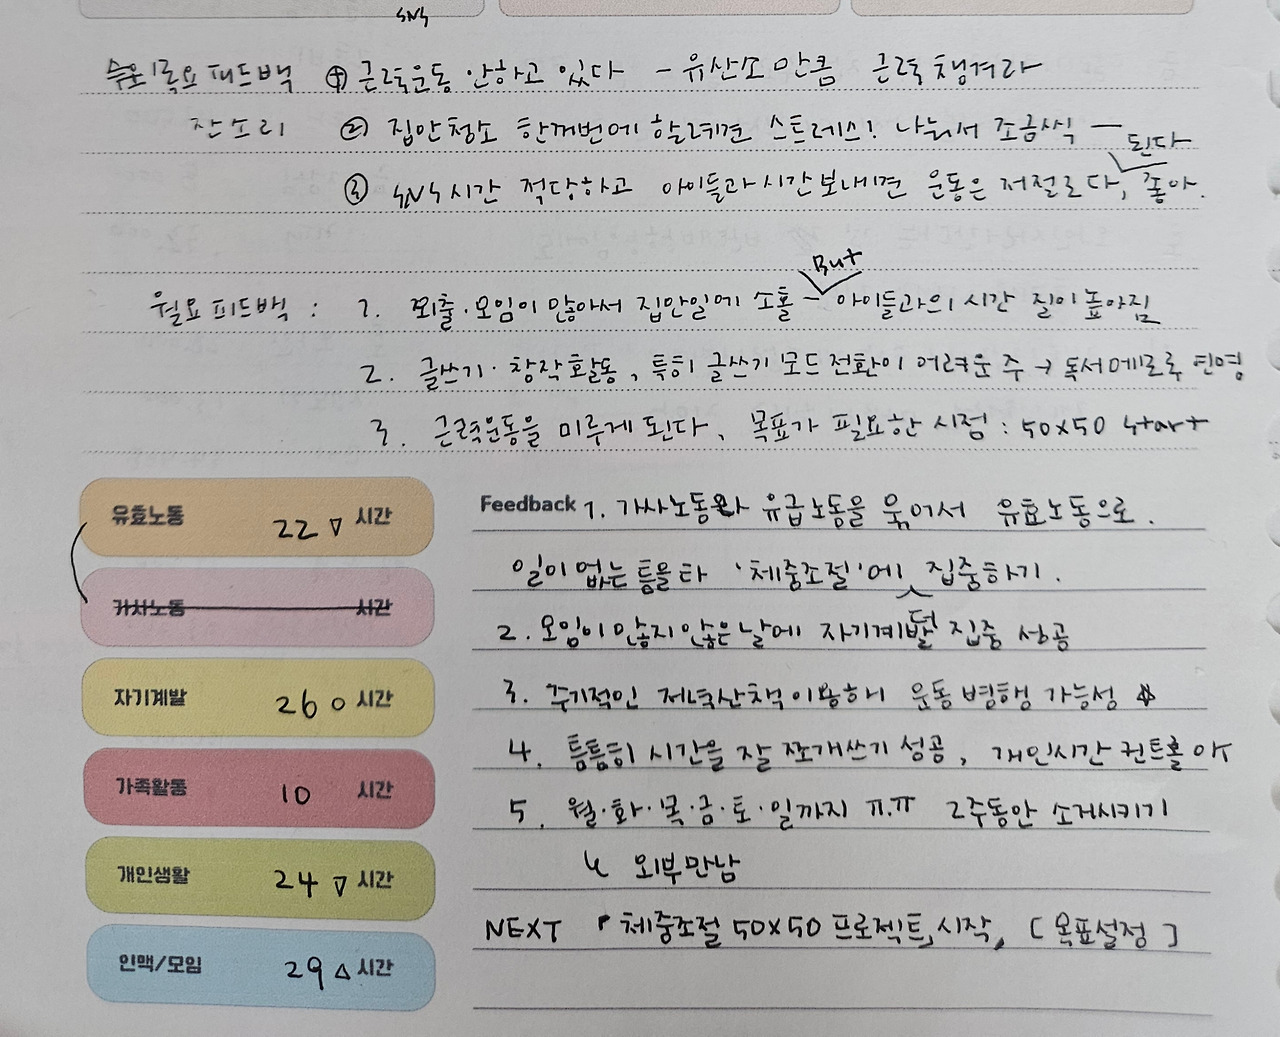 SNS
목요 피드백 ① 근력운동 안하고 있다 - 유산소만큼 근력 챙겨라
잔소리 ② 집안청소 한꺼번에 할려면 스트레스! 나눠서 조금씩 —
된다
③ SNS시간 적당하고 아이들과 시간보내면 운동은 저절로다, 좋아.
But
월요 피드백 : 1. 외출·모임이 많아서 집안일에 소홀 - 아이들과의 시간 질이 높아짐
2. 글쓰기·창작활동, 특히 글쓰기 모드 전환이 어려운 주 → 독서메모로 연명
3. 근력운동을 미루게 된다, 목표가 필요한 시점 : 50x50 start
유효노동 22 ▽ 시간
가사노동 시간
자기계발 26 ○ 시간
가족활동 10 시간
개인생활 24 ▽ 시간
인맥/모임 29 △ 시간
Feedback 1. 가사노동과 유급노동을 묶어서 유효노동으로.
일이 없는 틈을 타 '체중조절'에 집중하기.
2. 모임이 많지 않은 날에 자기계발 집중 성공
3. 주기적인 저녁산책 이용해 운동 병행 가능성
4. 틈틈히 시간을 잘 쪼개쓰기 성공, 개인시간 컨트롤 OK
5. 월·화·목·금·토·일까지 π.π 2주동안 소거시키기
↳ 외부만남
NEXT 「체중조절 50x50 프로젝트」시작, [목표설정]